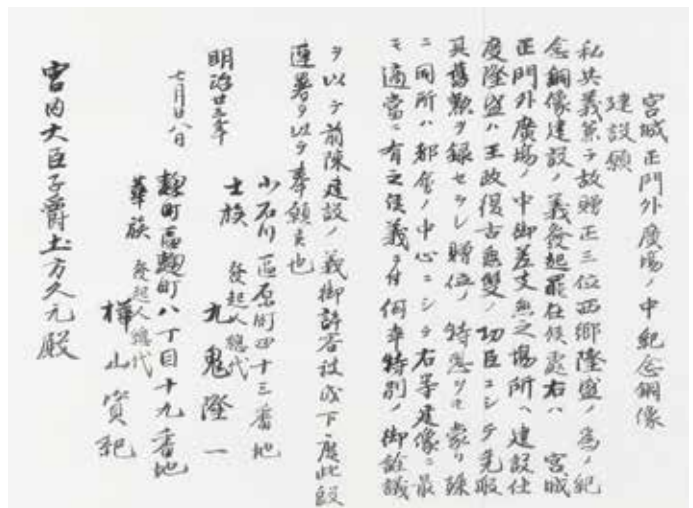 宮城正門外廣場ノ中紀念銅像
建設願
私共義兼テ故贈正三位西郷隆盛ノ為メ紀
念銅像建設ノ義發起罷在候處右ハ 宮城
正門外廣場ノ中御差支無之場所ヘ建設仕
度隆盛ハ王政復古無雙ノ功臣ニシテ先般
其舊勲ヲ録セラレ贈位ノ特恩ヲモ蒙リ殊
ニ同所ハ都會ノ中心ニシテ右等建像ニ最
モ適當ニ有之候義ニ付何卒特別ノ御詮議
ヲ以テ前陳建設ノ義御許容被成下度此段
連署ヲ以テ奉願候也
小石川區原町四十三番地
士族 發起人總代
九鬼隆一
明治廿三年
七月廿八日
麹町區麹町八丁目十九番地
華族 發起人總代
樺山資紀
宮内大臣子爵土方久元殿